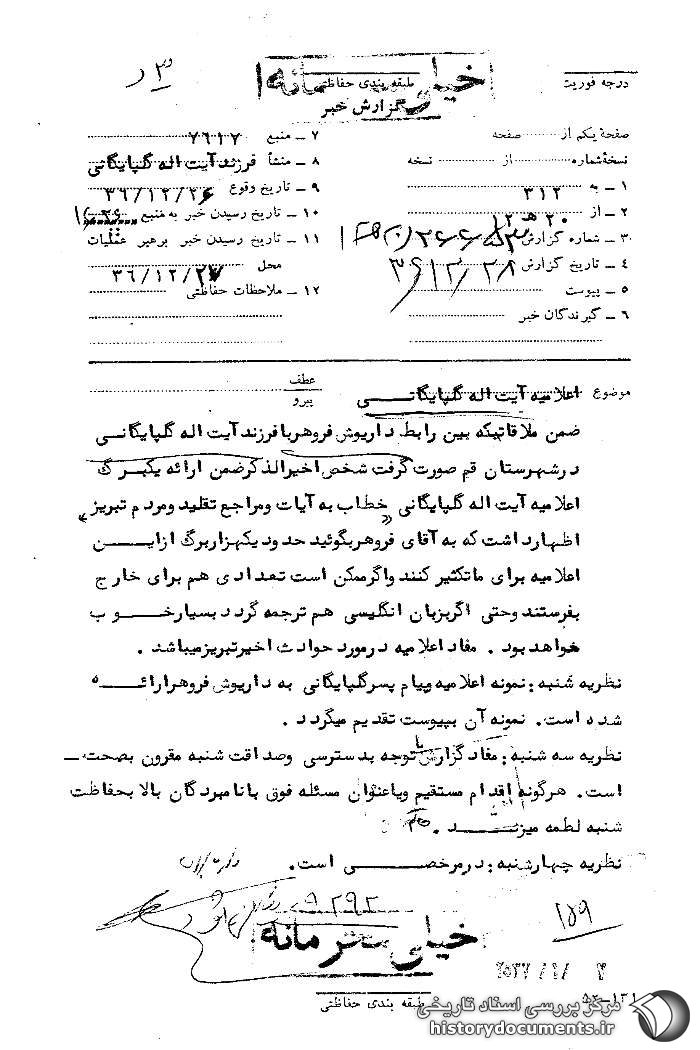 خیلی محرمانه
درجه فوریت
طبقه بندی حفاظتی
گزارش خبر
صفحهٔ یکم از صفحه
نسخهٔ شماره از نسخه
۱ ــ به ۳۱۲
۲ ــ از ۲۰ هـ ۱۲
۳ ــ شماره گزارش
۴ ــ تاریخ گزارش ۳۶/۱۲/۲۸
۵ ــ پیوست
۶ ــ گیرندگان خبر
۷ ــ منبع ۷۶۱۷
۸ ــ منشأ فرزند آیت اله گلپایگانی
۹ ــ تاریخ وقوع ۳۶/۱۲/۲۶
۱۰ ــ تاریخ رسیدن خبر به منبع
۱۱ ــ تاریخ رسیدن خبر برهبر عملیات
محل ۳۶/۱۲/۲۷
۱۲ ــ ملاحظات حفاظتی
موضوع اعلامیه آیت اله گلپایگانــی
عطف
پیرو
ضمن ملاقاتیکه بین رابط داریوش فروهر با فرزند آیت اله گلپایگانــی
در شهرستان قم صورت گرفت شخص اخیرالذکر ضمن ارائه یکبــرگ
اعلامیه آیت اله گلپایگانی «خطاب به آیات و مراجع تقلید و مردم تبریز»
اظهارداشت که به آقای فروهر بگوئید حدود یکهزار برگ از ایــن
اعلامیه برای ما تکثیر کنند و اگر ممکن است تعدادی هم برای خارج
بفرستند و حتی اگر بزبان انگلیسی هم ترجمه گردد بسیار خــوب
خواهد بود . مفاد اعلامیه در مورد حوادث اخیر تبریز میباشد .
نظریه شنبه : نمونه اعلامیه و پیام پسر گلپایگانی به داریوش فروهر ارائــه
شده است. نمونه آن بپیوست تقدیم میگردد .
نظریه سه شنبه : مفاد گزارش با توجه بدسترسی و صداقت شنبه مقرون بصحت ــ
است. هرگونه اقدام مستقیم و یا عنوان مسئله فوق با نامبردگان بالا بحفاظت
شنبه لطمه میزنــد .
نظریه چهارشنبه : در مرخصــی است.
۹۲۹۲
۱۵۹
خیلی محرمانه
طبقه بندی حفاظتی
مرکز بررسی اسناد تاریخی
historydocuments.ir